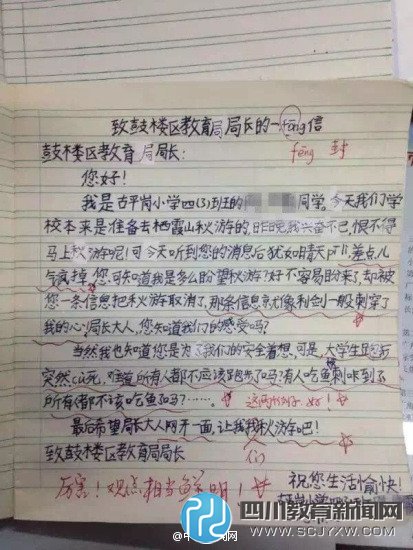 致鼓楼区教育局局长的一fēng信
fēng 封
鼓楼区教育局局长：
您好！
我是古平岗小学四(3)班的 同学，今天我们学
校本来是准备去栖霞山秋游的，昨晚我兴奋不已，恨不得
马上秋游呢！可今天听到您的消息后犹如晴天pī lì，差点儿
气疯掉。您可知道我是多么盼望秋游？好不容易盼来了，却被
您一条信息把秋游取消了，那条信息就像利剑一般刺穿了
我的心，局长大人，您知道我们的感受吗？
当然我也知道您是为了我们的安全着想，可是，大学生跑步
突然cù死，难道所有人都不应该跑步了吗？有人吃鱼刺咔到了
所有人都不该吃鱼了吗？……。 这两个例子好！
最后希望局长大人网开一面，让我们秋游吧！
致鼓楼区教育局局长
们
祝您生活愉快！
厉害！观点相当鲜明！
四川教育新闻网
WWW.SCJYXW.COM